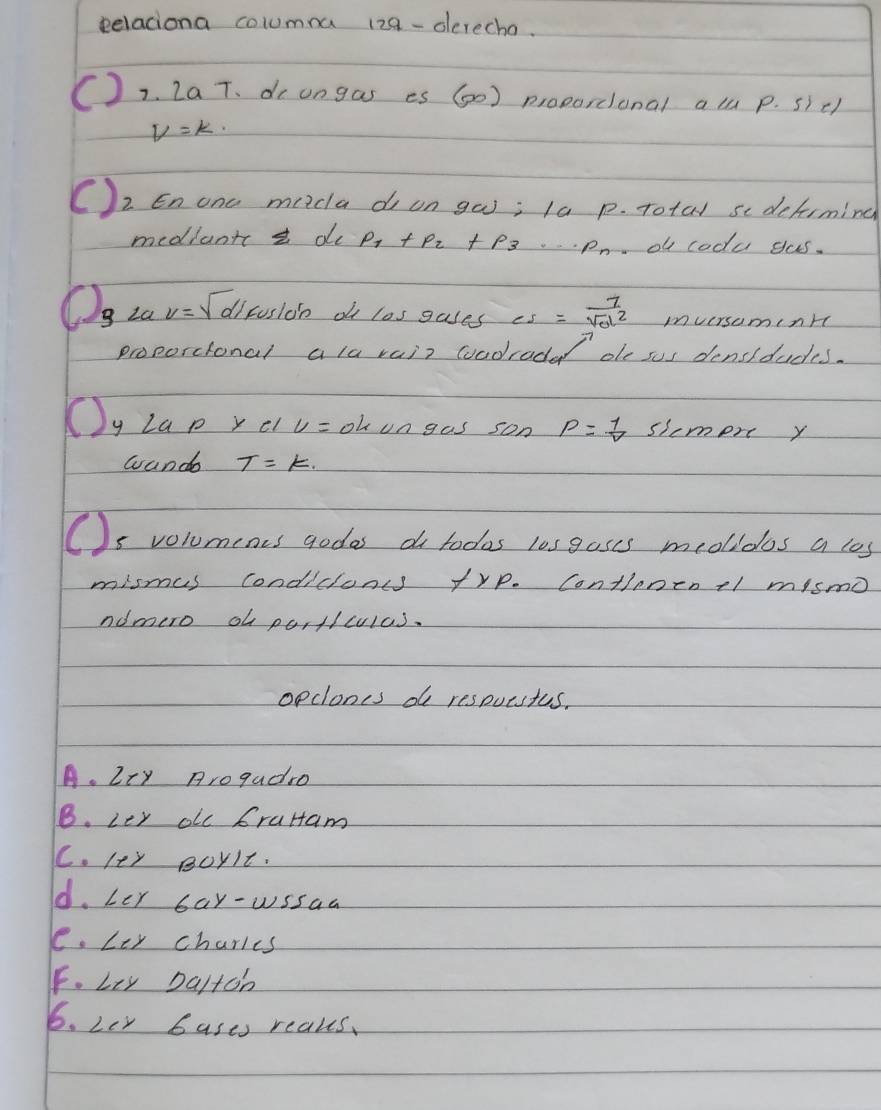 Relaciona columna izq - derecha.
() 1. La T. de un gas es (∞) proporcional a la p. si el
V = k.
() 2 En una mezcla de un gas; la p. Total se determina
mediante de P1 + P2 + P3 ... Pn. de cada gas.
() 3 La v = √difusión de los gases es = 1/√d2 inversamente
proporcional a la raiz cuadrada de sus densidades.
() 4 La p y el v = de un gas son P = 1/v siempre y
cuando T = k.
() 5 volumenes de todos los gases medidos a los
mismas condiciones t y p. Contienen el mismo
número de particulas.
opciones de respuestas.
A. Ley Avogadro
B. Ley de Graham
C. ley Boyle.
d. Ley Gay-Lussac
E. Ley Charles
F. Ley Daltón
G. Ley Gases reales.